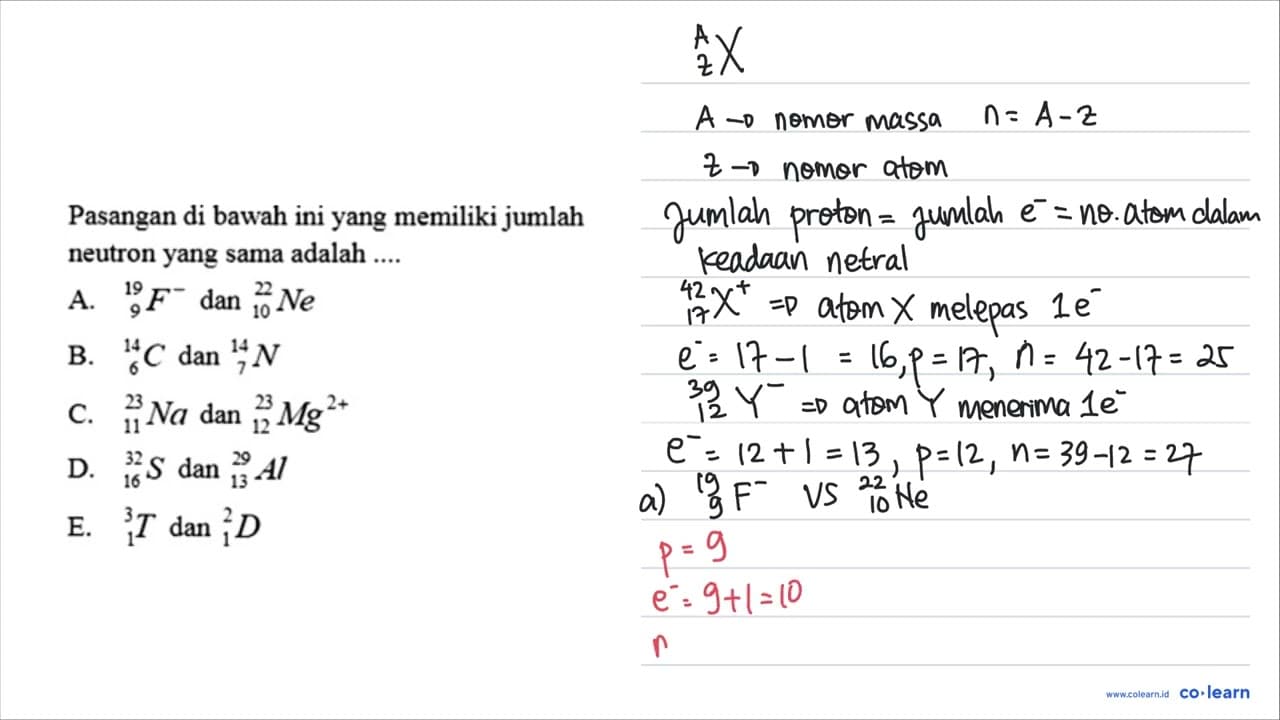 Pasangan di bawah ini yang memiliki jumlah
neutron yang sama adalah ....
A. ¹⁹₉F⁻ dan ²²₁₀Ne
B. ¹⁴₆C dan ¹⁴₇N
C. ²³₁₁Na dan ²³₁₂Mg²⁺
D. ³²₁₆S dan ²⁹₁₃Al
E. ³₁T dan ²₁D
ᴬ_Z X
A → nomor massa n = A - Z
Z → nomor atom
Jumlah proton = jumlah e⁻ = no. atom dalam
keadaan netral
⁴²₁₇X⁺ ⇒ atom X melepas 1e⁻
e⁻ = 17 - 1 = 16, p = 17, n = 42 - 17 = 25
³⁹₁₂Y⁻ ⇒ atom Y menerima 1e⁻
e⁻ = 12 + 1 = 13, p = 12, n = 39 - 12 = 27
a) ¹⁹₉F⁻ VS ²²₁₀Ne
p = 9
e⁻ = 9 + 1 = 10
n
www.colearn.id co·learn